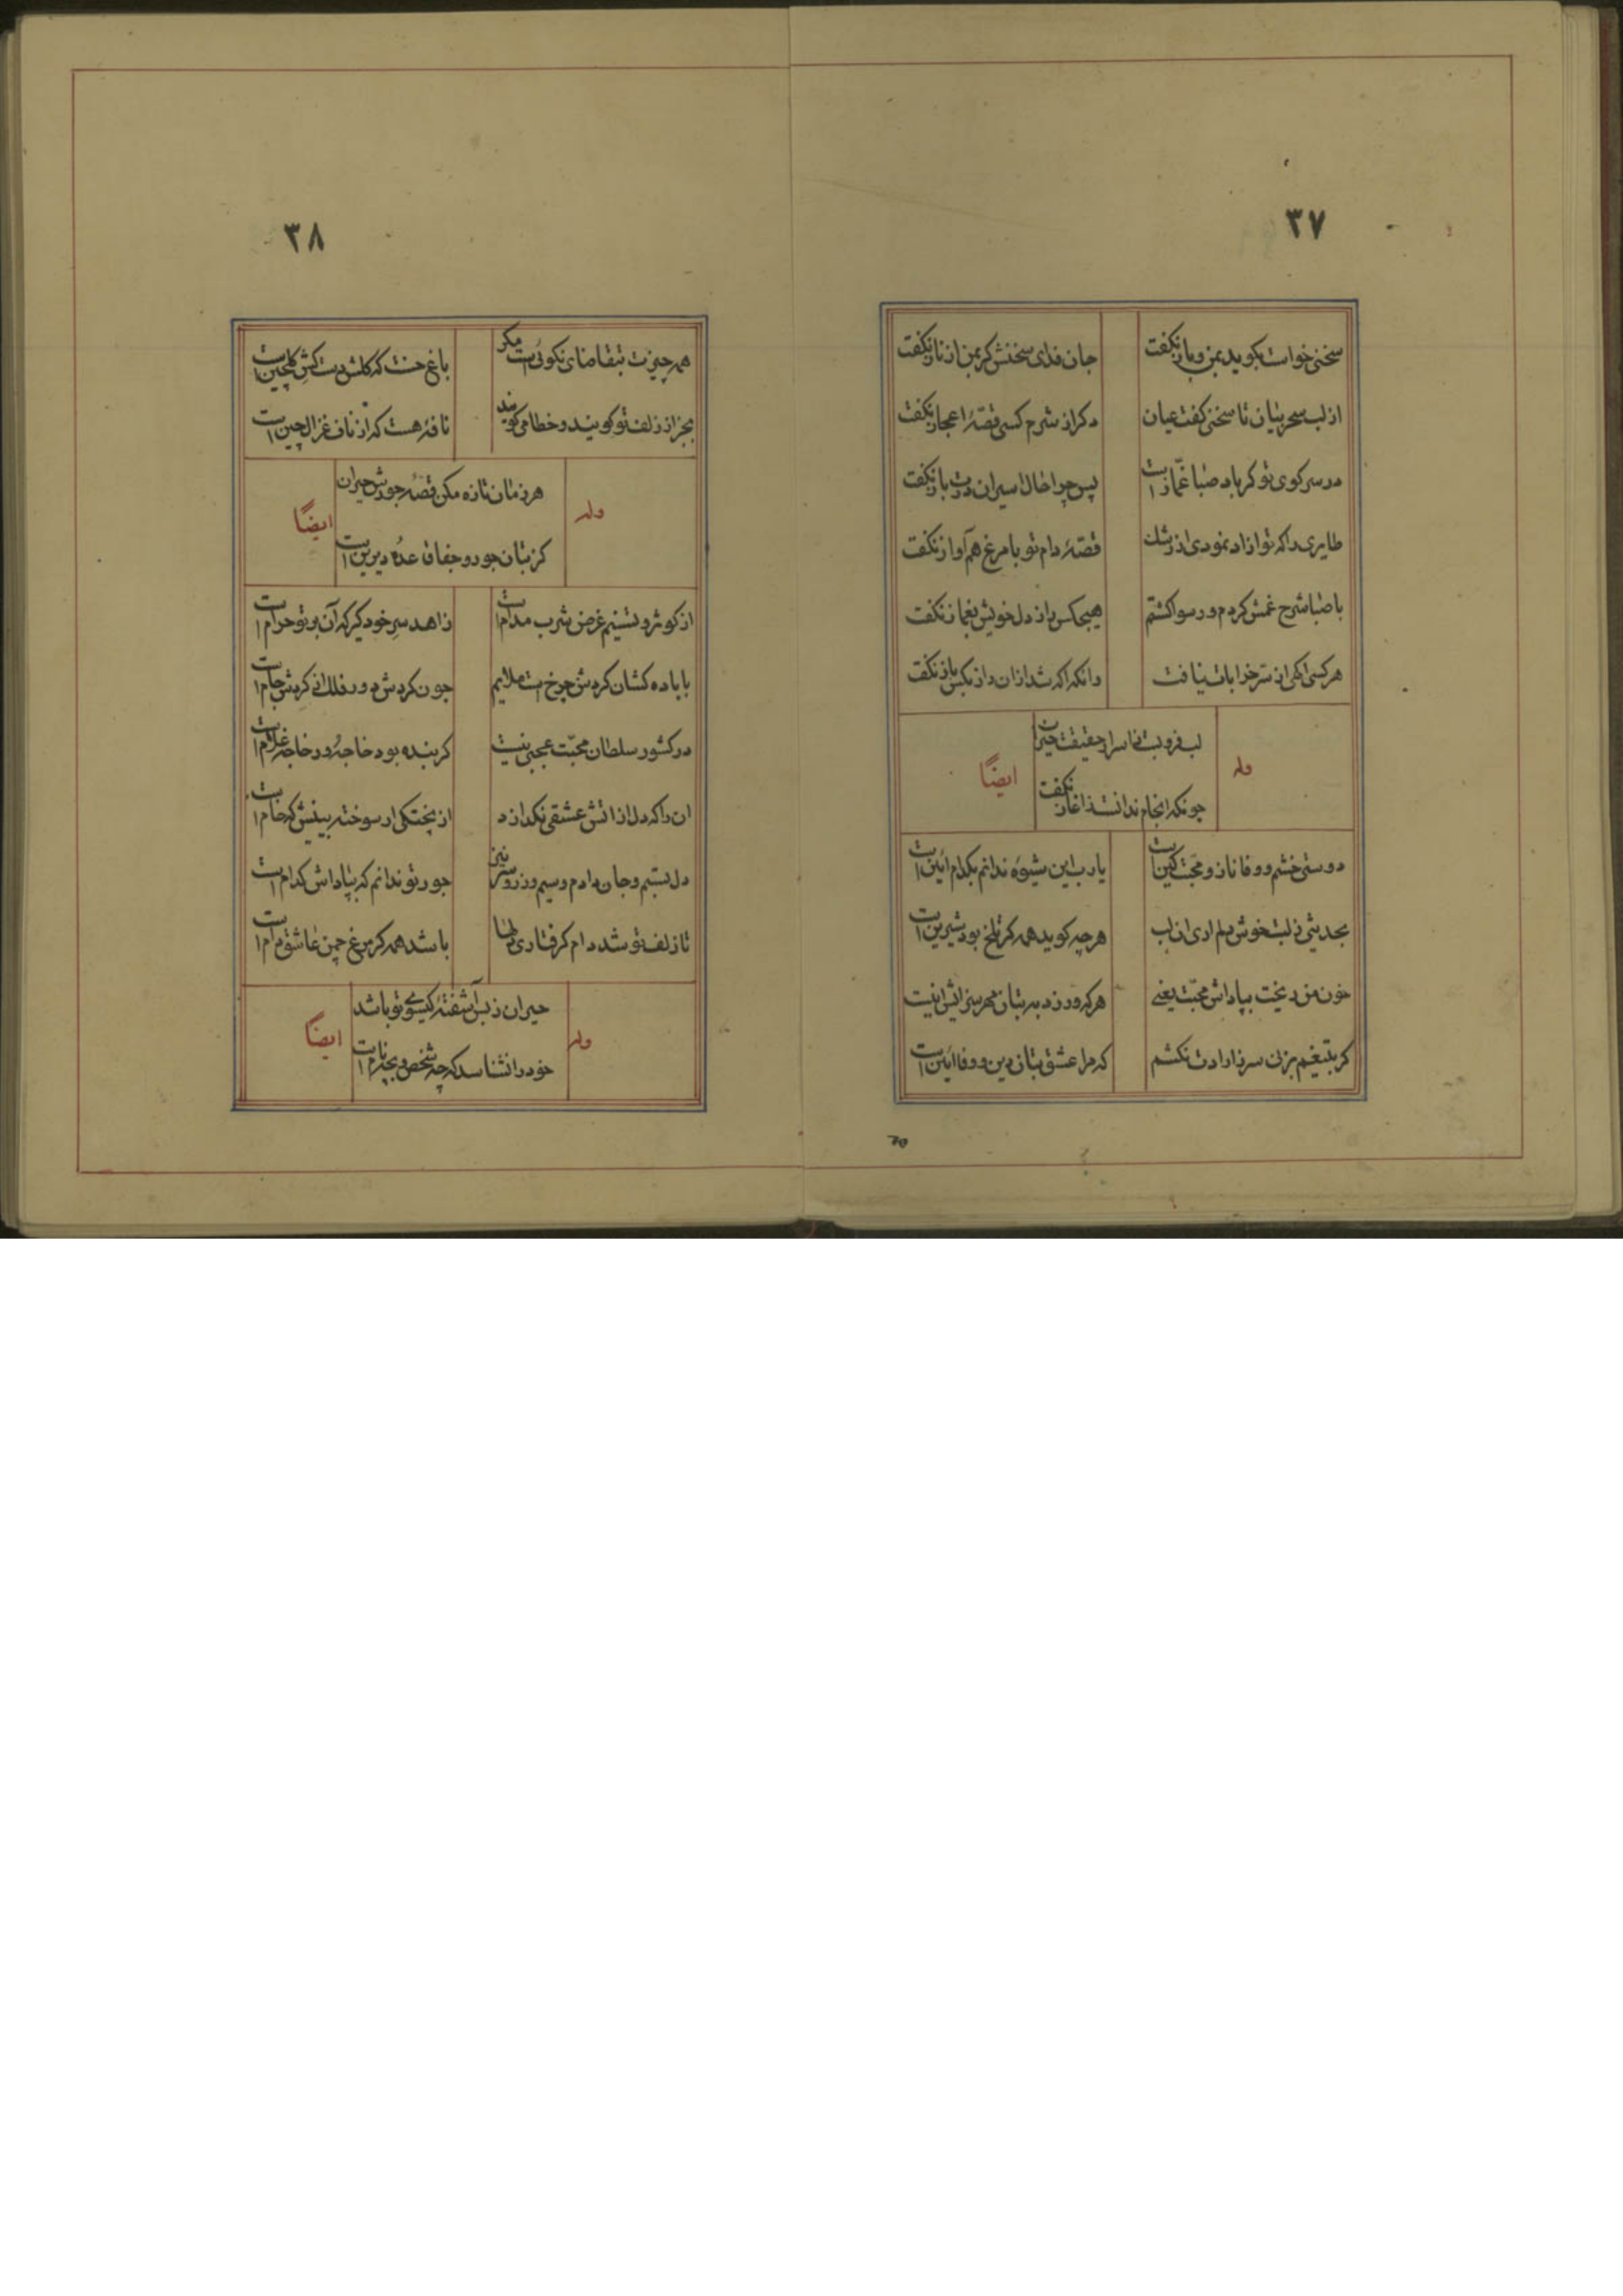 ۳۷
سخنی خواست بگوید بمن و باز نگفت
جان فدای سخنش کر بمن از ناز نگفت
از لب سحر بیان تا سخنی گفت عیان
دکر از شرم کسی قصهٔ اعجاز نگفت
در سر کوی تو کر باد صبا غمّاز است
پس چرا حال اسیران درت باز نگفت
طایری را که تو ازاد نمودی از رشک
قصهٔ دام تو با مرغ هم آواز نگفت
با صبا شرح غمش کردم و رسوا کشتم
هیچکس راز دل خویش بغماز نگفت
هر کسی اکهی از سر خرابات نیافت
وانکه اکه شد ازان راز بکس باز نگفت
وله
لب فرو بست ز اسرار حقیقت حیران
چونکه انجام ندانست ز اغاز نگفت
ایضاً
دوستی خشم و وفا ناز و محبت کین است
یا رب این شیوه ندانم بکدام ائین است
بحدیثی ز لبت خوش دلم ار زی ان لب
هر چه کوید همه کر تلخ بود شیرین است
خون من ریخت بپاداش محبت یعنی
هر که ورزد به بتان مهر سزایش اینست
کر بتیغم بزنی سر ز ارادت نکشم
که مرا عشق بتان دین و وفا ائین است
۳۸
همه چیزت بتقاضای نکوئی است مکر
باغ حسنت که کلش دست کش کلچین است
بجز از زلف تو کویند و خطا می کویند
نافه هست که از ناف غزال چین است
وله
هر زمان تازه مکن قصهٔ جورش حیران
کز بتان جور و جفا قاعدهٔ دیرین است
ایضاً
از کوثر و تسنیم غرض شرب مدام است
زاهد سر خود کیر که آن بر تو حرام است
با باده کشان کردش چرخ است ملایم
چون کردش دور فلک از کردش جام است
در کشور سلطان محبّت عجبی نیست
کر بنده بود خاجه و در خاجه غلام است
ان را که دل از اتش عشقی نکدازد
از پختکی ار سوخته بینیش که خام است
دل بستم و جان دادم و سیم و زر و سر نیز
جور تو ندانم که بپاداش کدام است
تا زلف تو شد دام کرفتاری دلها
باشد همه کر مرغ چمن عاشق دام است
وله
حیران ز بس آشفتهٔ کیسوی تو باشد
خود را نشناسد که چه شخص و بچه نام است
ایضاً